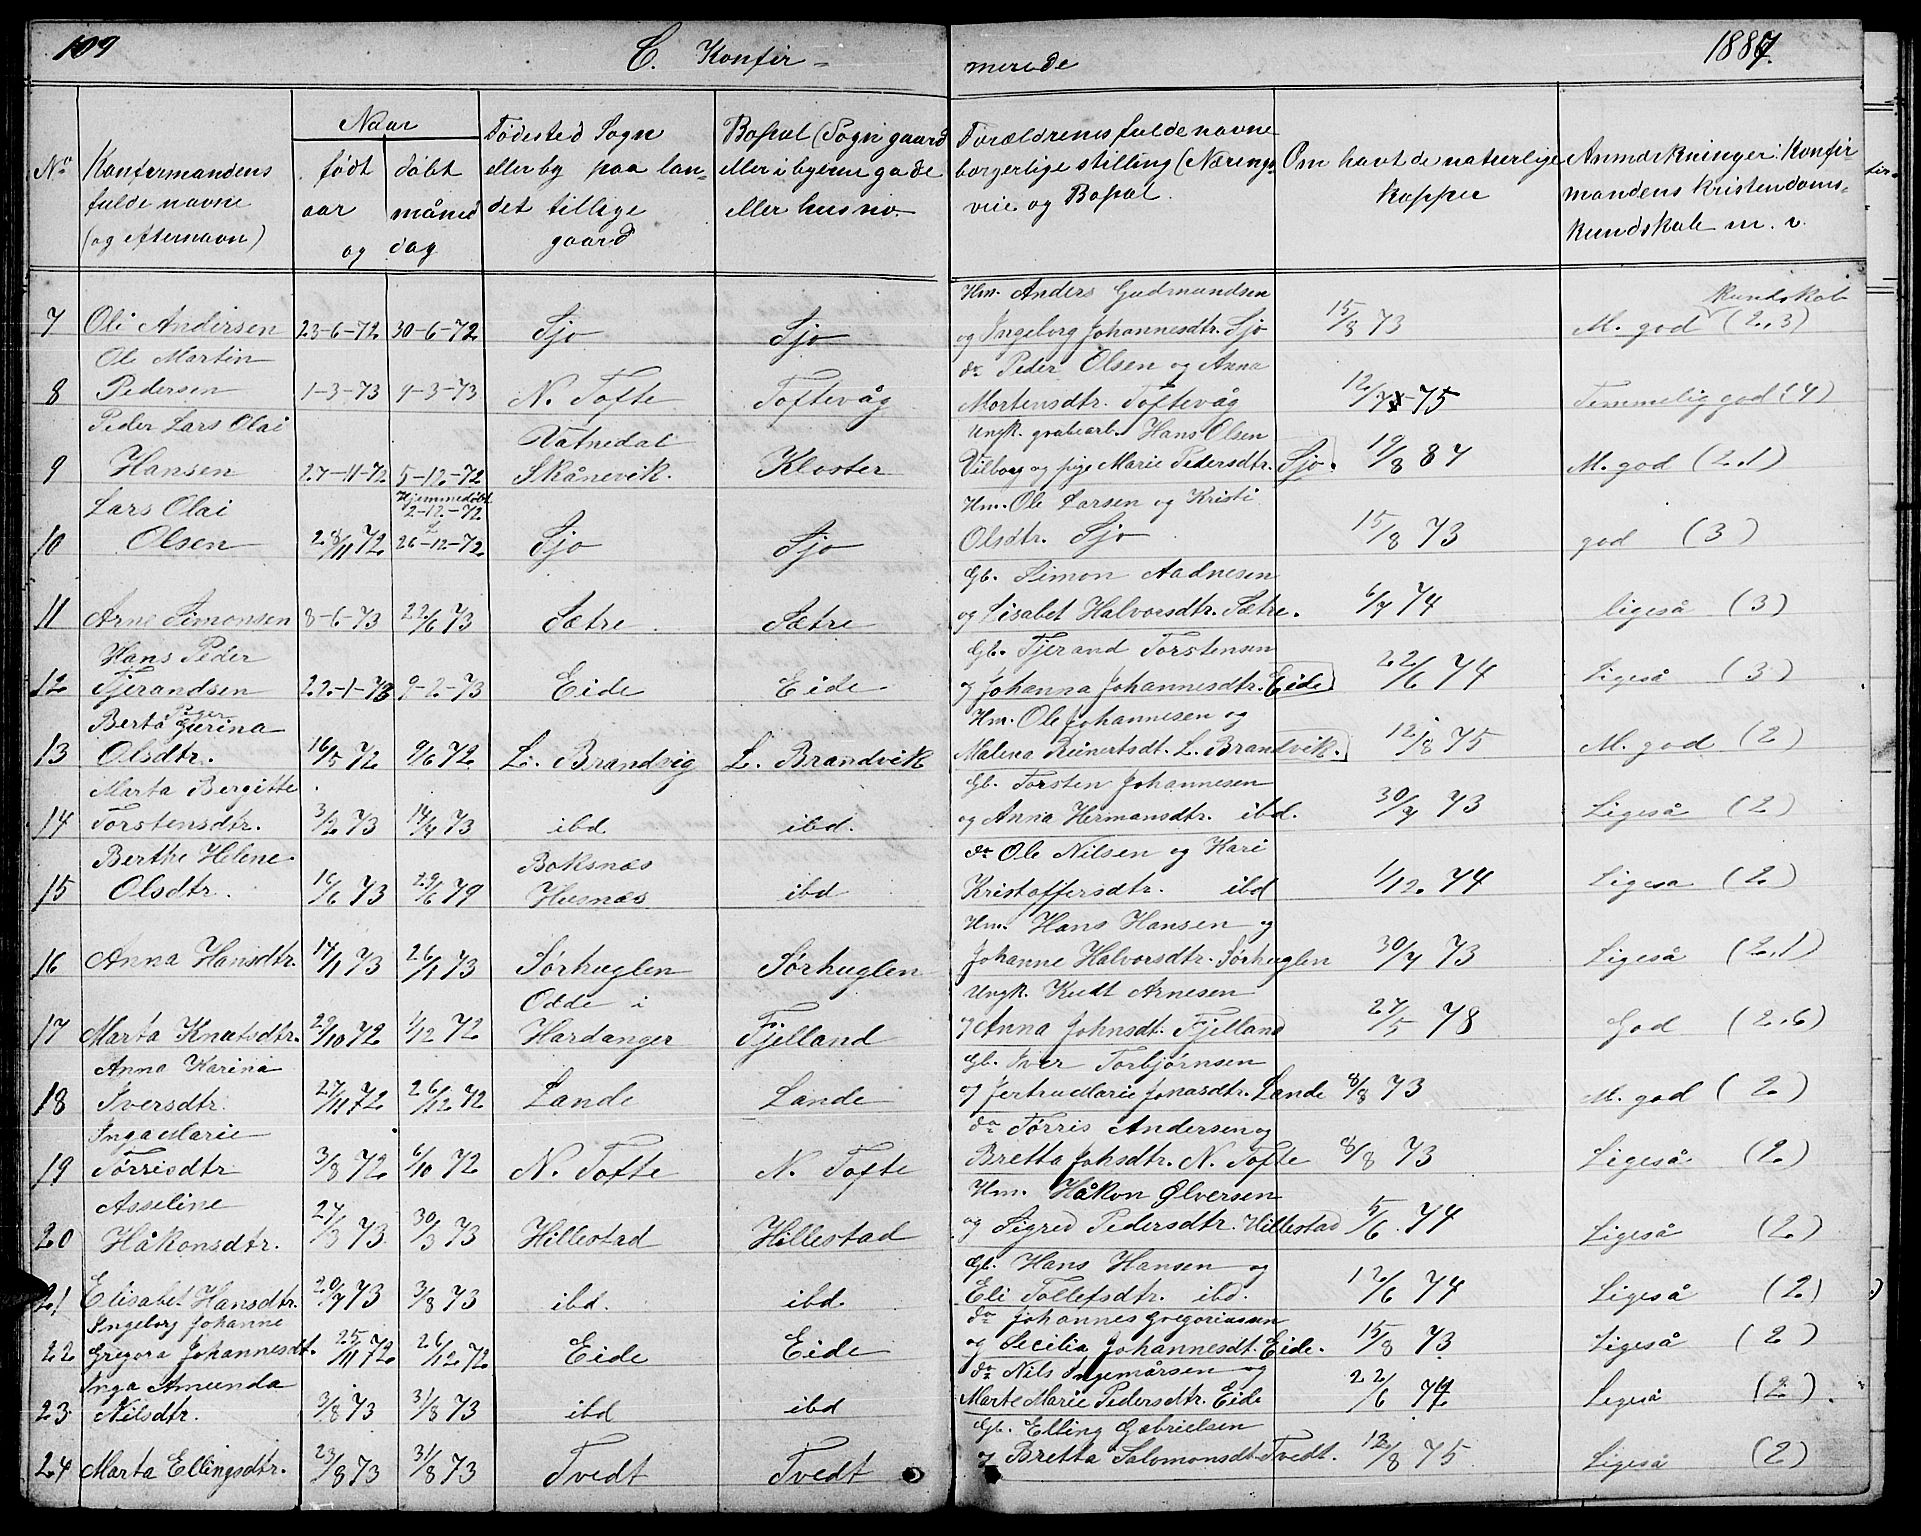 109
C. Konfir-
merede
1887.
No
Konfirmandens
fulde navne
(og efternavn)
Naar
født
døbt
aar
måned
og
dag
Fødested Sogn
eller by paa lan-
det tillige
gaard
Bopæl (Sogn gaard
eller i byerne gade
eller hus no
Forældrenes fulde navne
borgerlige stilling (Nærings-
veie og Bopæl.
Om havt de naturlige
kopper
Anmærkninger. Konfir
mandens kristendoms-
kundskab m. v.
7 Ole Andersen 23-6-72 30-6-72 Sjo Sjo
Hm. Anders Gudmundsen
og Ingeborg Johannesdtr. Sjo 15/8 73 M. god (2,3)
kundskab
Ole Martin
8 Pedersen 1-3-73 9-3-73 N. Tofte Toftevåg
do Peder Olsen og Anna
Mortensdtr. Toftevåg 12/7-75 Temmelig god (4)
Peder Lars Olai
9 Hansen 27-11-72 5-12-72 Vatnedal
Skånevik. Kloster
Ungk. grabearb. Hans Olsen
Vilborg og pige Marie Pedersdtr. Sjo. 19/8 87 M. god (2,1)
Lars Olai
10 Olsen 28/11 72 Hjemmedøbt
2-12-72
26-12-72 Sjo Sjo
Hm. Ole Larsen og Kristi
Olsdtr. Sjo 15/8 73 god (3)
11 Arne Simonsen 8-6-73 22/6 73 Sætre Sætre
Gb. Simon Aadnesen
og Lisabet Halvorsdtr. Sætre. 6/7 74 ligeså (3)
Hans Peder
12 Tjerandsen 22-1-73 9-2-73 Eide Eide
Gb. Tjerand Torstensen
og Johanna Johannesdtr. Eide 22/6 74 Ligeså (3)
Berta Gurina
13 Olsdtr. 16/5 72 9/6 72 L. Brandvig L. Brandvik
Hm. Ole Johannesen og
Malena Reinertsdt. L. Brandvik. 12/8 75 M. god (2)
Marta Bergitte
14 Torstensdtr. 3/2 73 14/4 73 ibd ibd.
Gb. Torsten Johannesen
og Anna Hermansdtr. ibd. 30/7 73 Ligeså (2)
Berthe Helene
15 Olsdtr. 16/6 73 29/6 79 Boksnæs
Husnæs ibd
do Ole Nilsen og Kari
Kristoffersdtr. ibd 1/12 74 Ligesa (2)
16 Anna Hansdtr. 14/1 73 26/1 73 Sørhuglen Sørhuglen
Hm. Hans Hansen og
Johanne Halvorsdtr. Sørhuglen 30/7 73 Ligeså (2,1)
17 Marta Knutsdtr. 29/10 72 1/12 72 Odde i
Hardanger Fjelland
Ungk. Knut Arnesen
og Anna Johnsdt. Fjelland 27/5 78 God (2.6)
Anna Karina
18 Iversdtr. 27/11 72 26/12 72 Lande Lande
Gb. Iver Torbjørnsen
og Jertru Marie Jonasdtr. Lande 8/8 73 M. god (2)
Inga Marie
19 Tørrisdtr 3/8 72 6/10 72 N. Tofte N. Tofte
do Tørris Andersen og
Bretta Johsdtr. N. Tofte 8/8 73 Ligeså (2)
Asseline
20 Håkonsdtr. 27/3 73 30/3 73 Hillestad Hillestad
Hm. Håkon Ølversen
og Sigred Pedersdtr. Hillestad 5/6. 74 Ligeså (2)
21 Elisabet Hansdtr. 20/7 73 3/8 73 ibd. ibd.
Gb. Hans Hansen og
Eli Tollefsdtr. ibd. 12/6 74 Ligeså (2)
Ingeborg Johanne
22 Gregora Johannesdt. 25/11 72 26/12 72 Eide Eide
do Johannes Gregoriussen
og Secilia Johannesdt. Eide. 15/8 73 Ligeså (2)
Inga Amunda
23 Nilsdtr. 3/8 73 31/8 73 ibd ibd
do Nils Ingemårsen og
Marte Marie Pedersdtr. Eide 22/6 74 Ligeså (2)
24 Marta Ellingsdtr. 23/8 73 31/8 73 Tvedt Tvedt
Gb. Elling Gabrielsen
og Bretta Salomonsdt. Tvedt. 12/8 75 Ligeså (2)